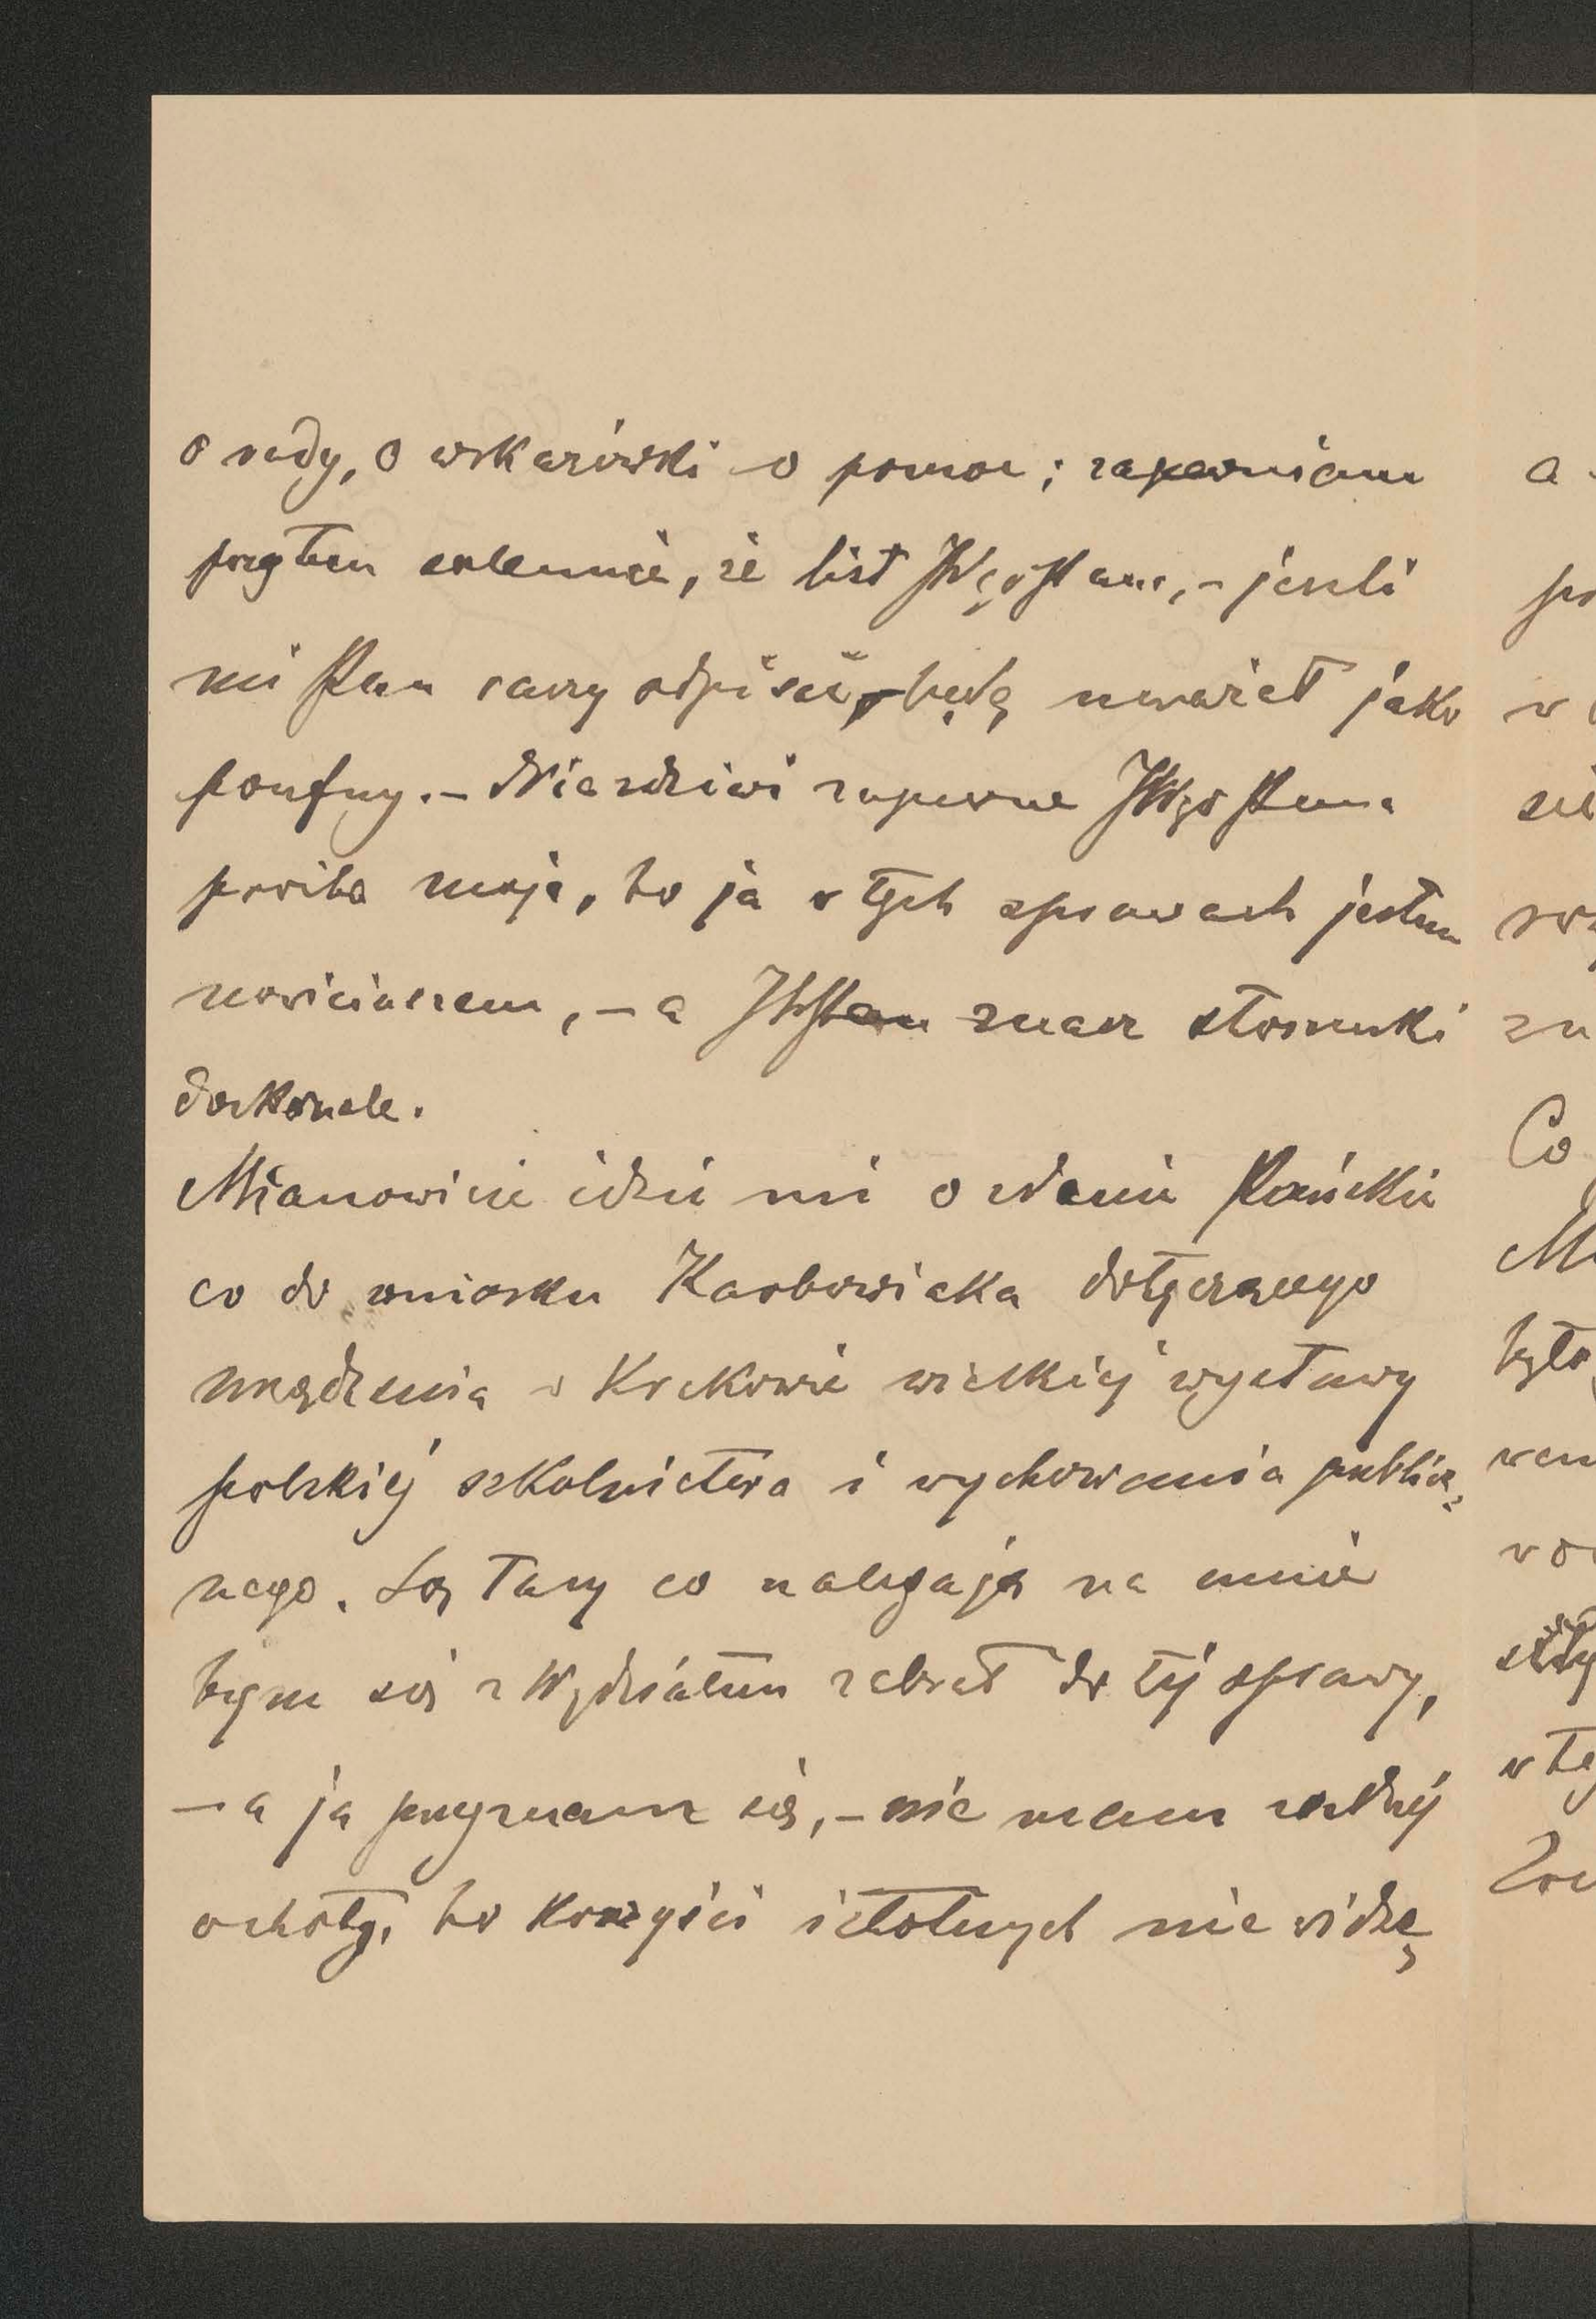 o rady, o wskazówki o pomoc; zapewniam
przytem solennie, że list JWgo Pana, – jeśli
mi Pan raczy odpisać, – będę uważał jako
poufny. – Nie zdziwi zapewne JWgo Pana
prośba moja, bo ja w tych sprawach jestem
nowicjuszem, – a JWPan znasz stosunki
doskonale.
Mianowicie idzie mi o zdanie Pańskie
co do wniosku Karbowiaka dotyczącego
urządzenia w Krakowie wielkiej wystawy
polskiej szkolnictwa i wychowania publicz„
nego. Są tacy co nalegają na mnie
bym się z Wydziałem zabrał do tej sprawy,
– a ja przyznam się, – nie mam żadnej
ochoty, bo korzyści istotnych nie widzę
a
w
Co